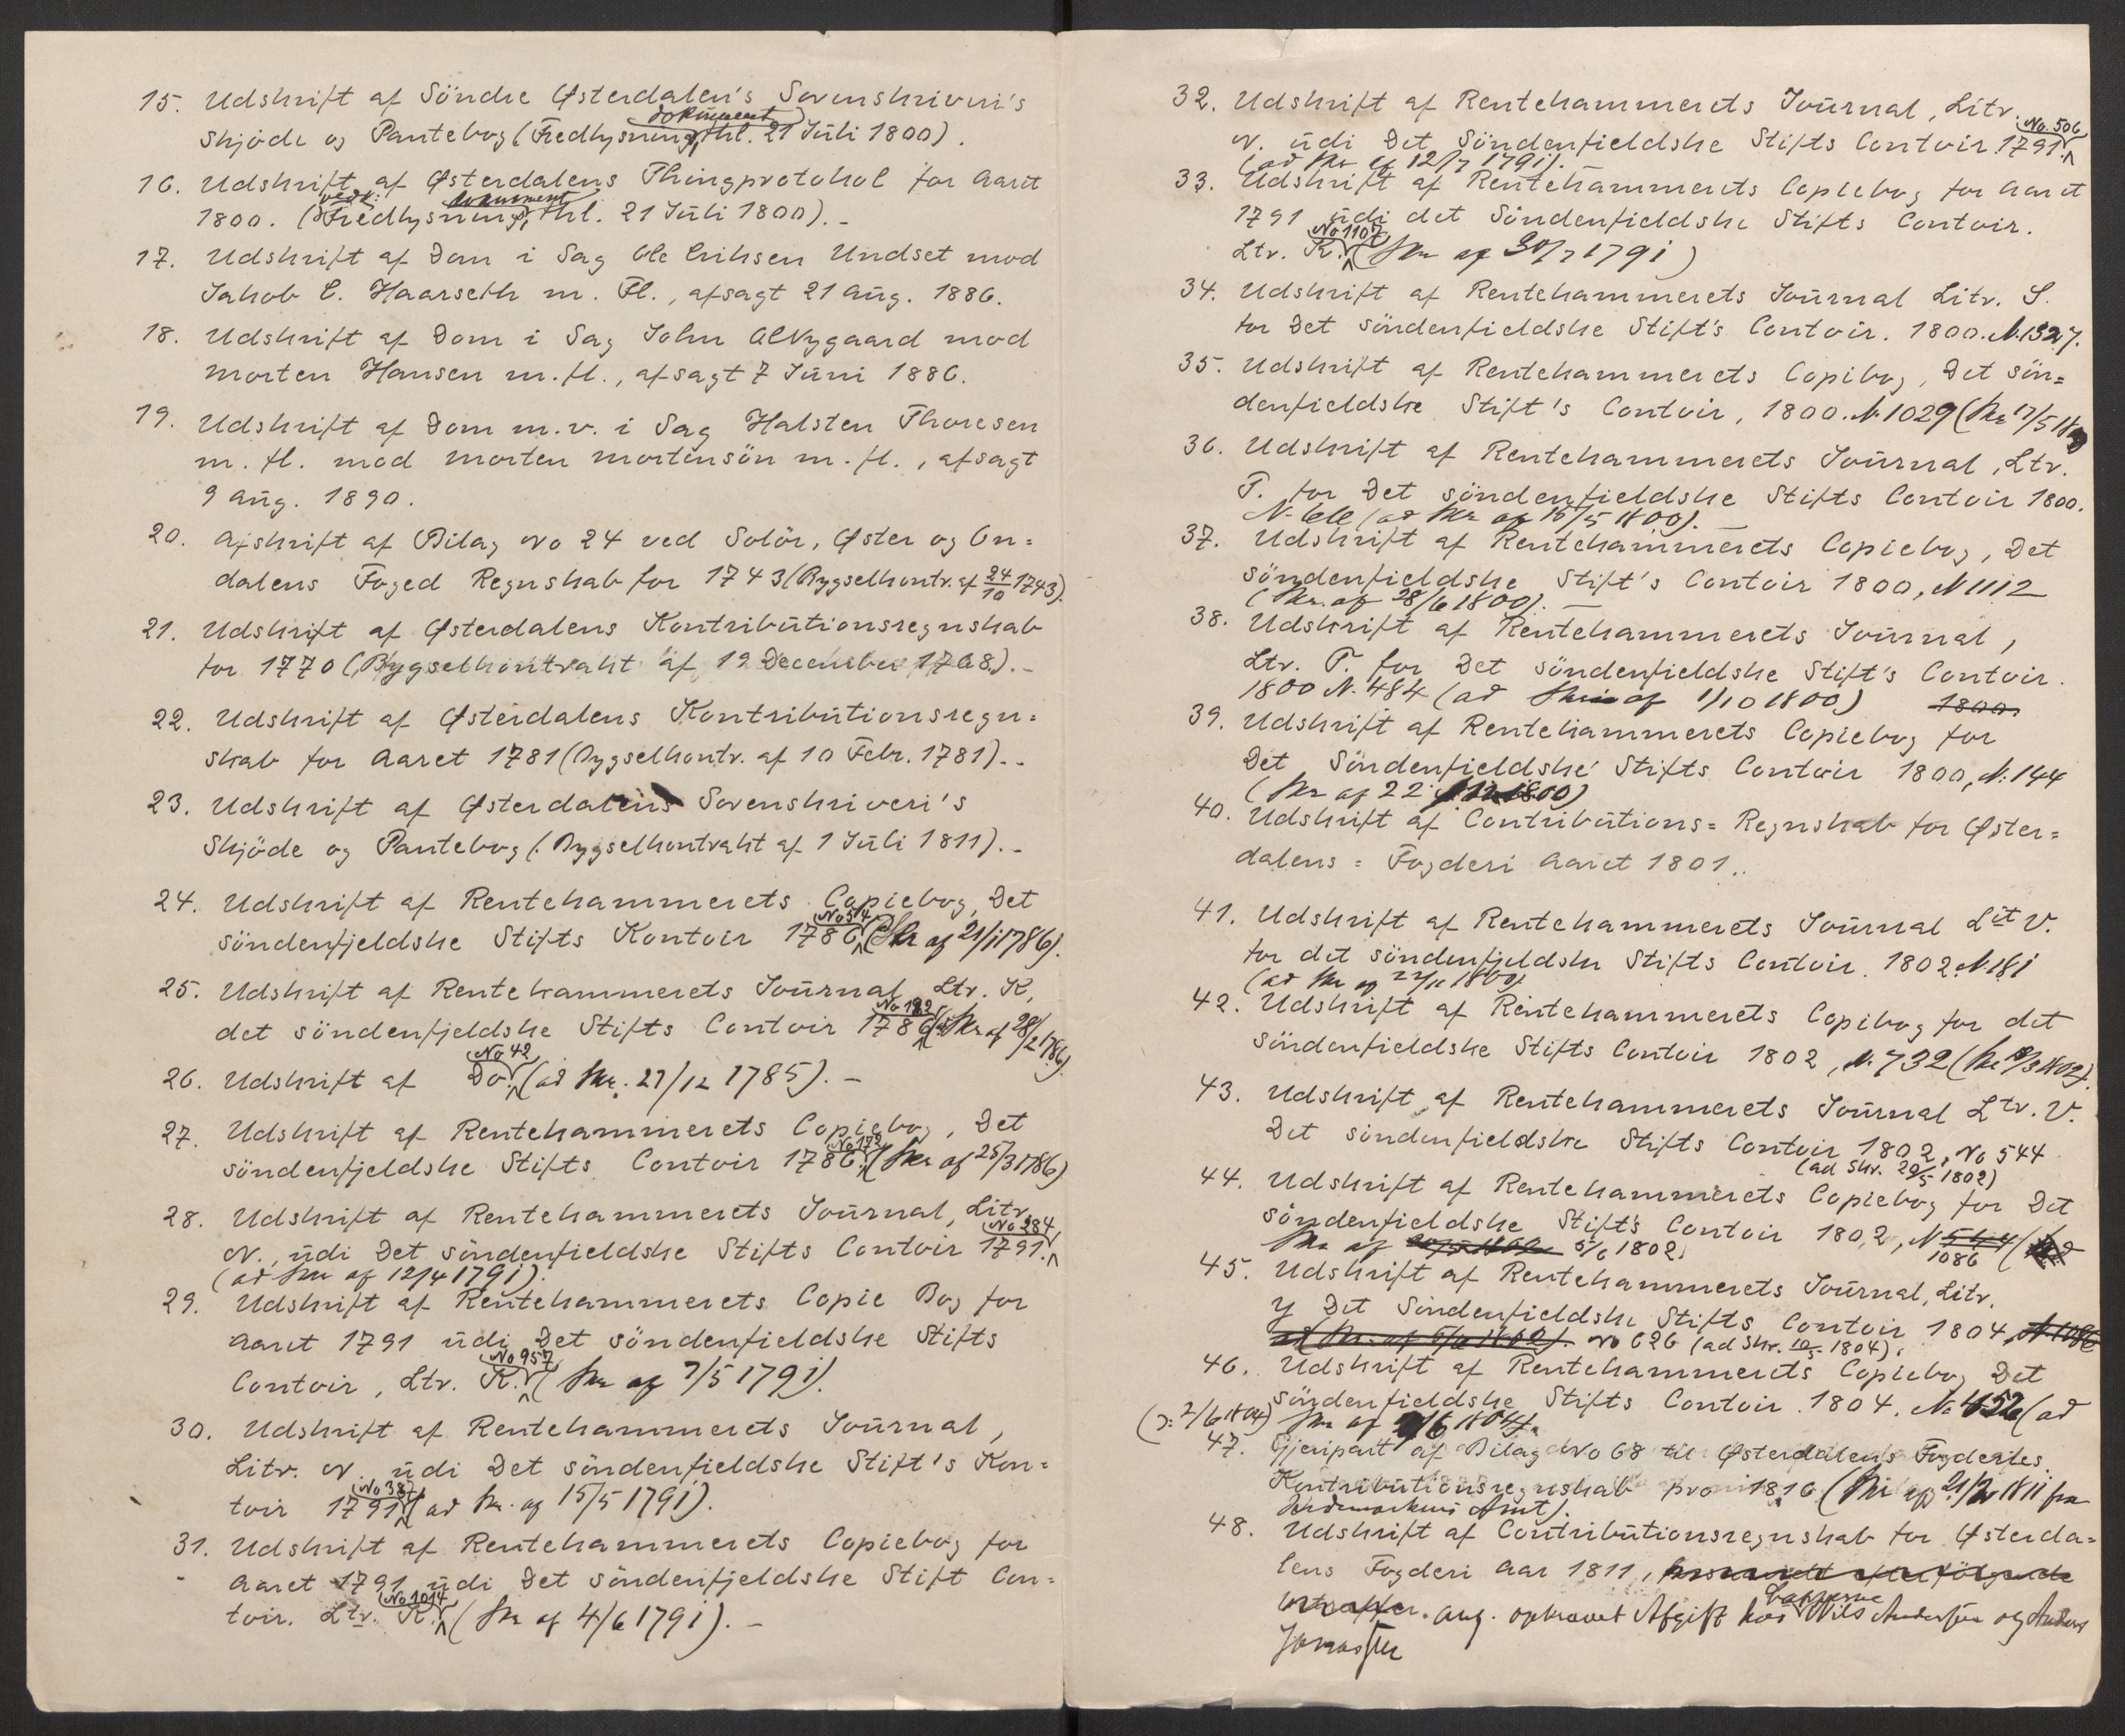 15. Udskrift af Söndre Østerdalen's Sorenskriveri's
dokument
Skjöde og Pantebog (Fredlysnings, thl. 21 Jüli 1800).
16. Udskrift af Østerdalens Thingprotokol for Aaret
vedk: dokument
1800. (Fredlysnings, thl. 21 Jüli 1800). -
17. Udskrift af Dom i Sag Ole Eriksen Undset mod
Jakob E. Haarseth m. Fl., afsagt 21 Aüg. 1886.
18. Udskrift af Dom i Sag John O Nygaard mod
Morten Hansen m. fl., afsagt 7 Jüni 1886.
19. Udskrift af Dom m. v. i Sag Halsten Thoresen
m. fl. mod Morten Mortensön m. fl., afsagt
9 Aüg. 1890.
20. Afskrift af Bilag No 24 ved Solör, Øster og On=
dalens Foged Regnskab for 1743 (Bygselkontr. af 24/10 1743).
21. Udskrift af Østerdalens Kontribütionsregnskab
for 1770 (Bygselkontrakt af 19 December 1768). -
22. Udskrift af Østerdalens Kontribütionsregn=
skab for Aaret 1781 (Bygselkontr. af 10 Febr. 1781). -
23. Udskrift af Østerdalens Sorenskriveri's
Skjöde og Pantebog (. Bygselkontrakt af 1 Jüli 1811). -
24. Udskrift af Rentekammerets Copiebog, Det
No 514
söndenfjeldske Stifts Kontoir 1786 (Skr af 21/1 1786).
25. Udskrift af Rentekammerets Joürnal Ltr. K,
No 192
det söndenfjeldske Stifts Contoir 1786 (ad Skr af 28/2 1786)
No 42
26. Udskrift af Do. (ad Skr. 27/12 1785). -
27. Udskrift af Rentekammerets Copiebog, Det
No 172
söndenfjeldske Stifts Contoir 1786. (Skr af 25/3 1786)
28. Udskrift af Rentekammerets Joürnal, Litr.
No 284
N., üdi Det söndenfieldske Stifts Contoir 1791.
(ad Skr af 12/4 1791).
29. Udskrift af Rentekammerets Copie Bog for
Aaret 1791 üdi Det söndenfieldske Stifts
No 957
Contoir, Ltr. K. (Skr af 7/5 1791).
30. Udskrift af Rentekammerets Joürnal,
Litr. N. üdi Det söndenfieldske Stift's Kon=
No 387
toir 1791 (ad Skr. af 15/5 1791).
31. Udskrift af Rentekammerets Copiebog for
Aaret 1791 üdi Det söndenfjeldske Stift Con=
No 1014
toir. Ltr. K. (Skr af 4/6 1791). -
32. Udskrift af Rentekammerets Joürnal, Litr.
No. 506
N. üdi Det Söndenfieldske Stifts Contoir 1791.
(ad Skr af 12/7 1791).
33. Udskrift af Rentekammerets Copiebog for Aaret
1791 üdi det Söndenfieldske Stifts Contoir.
No 1107
Ltr. K. (Skr af 30/7 1791)
34. Udskrift af Rentekammerets Joürnal Litr. S.
for Det söndenfieldske Stift's Contoir. 1800. N. 1327.
35. Udskrift af Rentekammerets Copibog, Det sön=
denfieldske Stift's Contoir, 1800. N. 1029 (Skr 17/5
36. Udskrift af Rentekammerets Joürnal, Ltr.
T. for Det söndenfieldske Stifts Contoir 1800.
N. (ad Skr af 15/5 1800).
37. Udskrift af Rentekammerets Copiebog, Det
söndenfieldske Stift's Contoir 1800, N 1112
(Skr. af 28/6 1800).
38. Udskrift af Rentekammerets Joürnal,
Ltr. T. for Det söndenfieldske Stift's Contoir.
1800 N. 484 (ad Skr af 1/10 1800) 1800.
39. Udskrift af Rentekammerets Copiebog for
Det Söndenfieldske Stifts Contoir 1800, N. 144
(Skr af 22
40. Udskrift af Contribütions= Regnskab for Øster=
dalens = Fogderi Aaret 1801.
41. Udskrift af Rentekammerets Joürnal Lit V.
for det söndenfjeldske Stifts Contoir. 1802. N. 181
(ad Skr af
42. Udskrift af Rentekammerets Copibog for det
söndenfieldske Stifts Contoir 1802, N. 732 (Skr /3 1802).
43. Udskrift af Rentekammerets Joürnal Ltr. V.
Det söndenfieldske Stifts Contoir 1802, No 544
(ad Skr. 29/5 1802)
44. Udskrift af Rentekammerets Copiebog for Det
söndenfieldske Stift's Contoir 1802, N 544 (
Skr af 5/6 1802. 1086
45. Udskrift af Rentekammerets Joürnal, Litr.
Y Det Söndenfieldske Stifts Contoir 1804, N. 1086
ad Skr af 5/6 1802). No 626 (ad Skr. 10/5 1804).
46. Udskrift af Rentekammerets Copiebog Det
söndenfieldske Stifts Contoir 1804, No 452 (ad
(ɔ: 2/6 1804) Skr af 6 1804).
47. Gjenpart af Bilag No 68 til Østerdalens Fogderies
Kontribütionsregnskab pro 1810 (Skr af 21/ 1811 fra
Hedemarkens Amt).
48. Udskrift af Contribütionsregnskab for Østerda=
lens Fogderi Aar 1811,
Lapperne
ang. opkrævet Afgift hos Nils Andersen og Anders
Jonassen